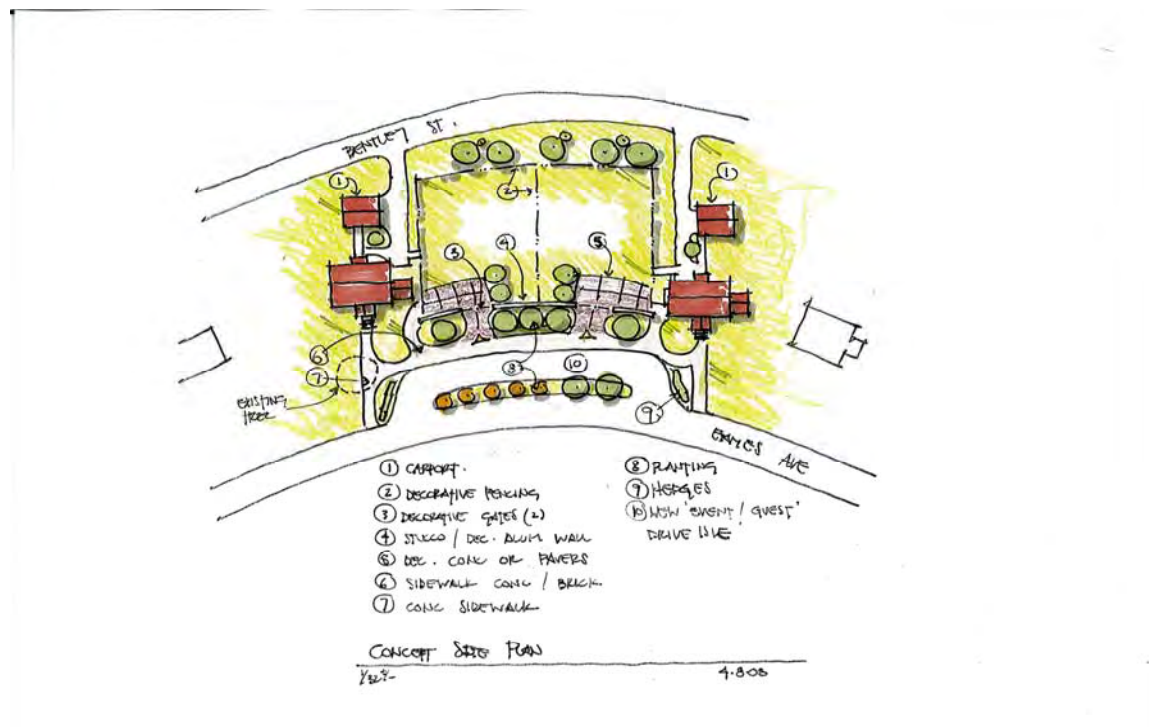 BENTLEY ST.
1
1
2
3
4
5
6
7
8
10
9
EXISTING
TREE
AVE
1 CARPORT.
2 DECORATIVE FENCING
3 DECORATIVE GATES (2)
4 STUCCO / DEC. ALUM WALL
5 DEC. CONC OR PAVERS
6 SIDEWALK CONC / BRICK.
7 CONC SIDEWALK
8 PLANTING
9 HEDGES
10 NEW 'EVENT / GUEST'
DRIVE ISLE
CONCEPT SITE PLAN
4.8.08